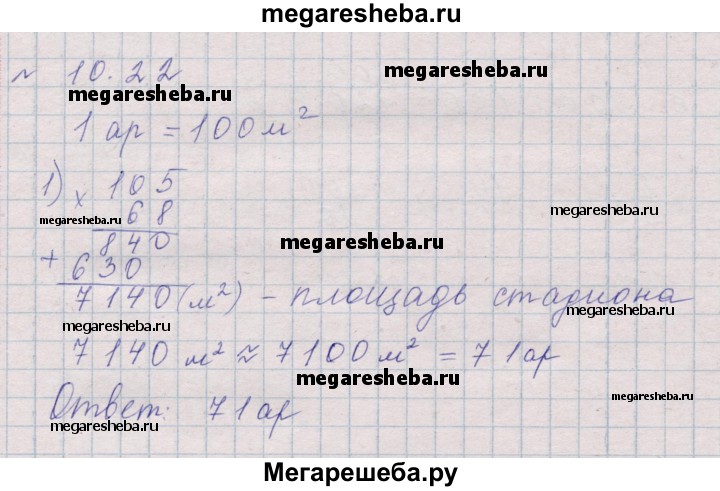 megaresheba.ru
№ 10.22
megaresheba.ru
megaresheba.ru
1 ар = 100 м²
1) × 105
megaresheba.ru 68
840
megaresheba.ru
+ 630
7140 (м²) - площадь стадиона
megaresheba.ru
megaresheba.ru
7140 м² ≈ 7100 м² = 71 ар
megaresheba.ru
megaresheba.ru
Ответ: 71 ар
megaresheba.ru
Мегарешеба.ру